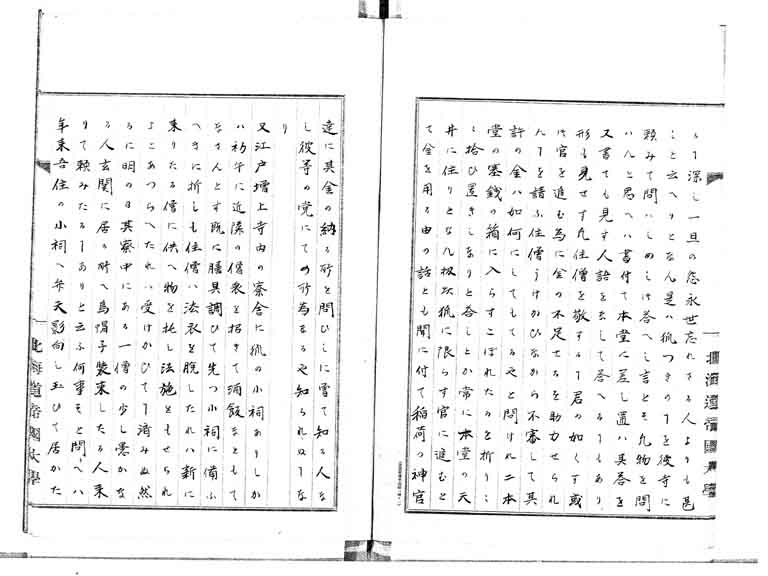 るヿ深し一旦の忿永世忘れさる人よりも甚
しと云へりとなん是ハ狐つきのヿを彼寺に
頼みて問ハしめしに答へし言とそ凡物を問
ハんと思へハ書付て本堂に差し置ハ其答を
又書ても見す人語をなして答へるヿもあり
形も見せす凡住僧を敬するヿ君の如くす或
は官を進む為に金の不足せるを助力せられ
んヿを請ふ住僧うけかひなから不審して其
許の金ハ如何にしてもてるやと問けれハ本
堂の賽銭の箱に入らすこぼれたるを折々に
拾ひ置きしなりと答しとか常に本堂の天
井に住りとなん扨又狐に限らす官に進むと
て金を用る由の話とも聞に付て稲荷の神官
北海道帝國大學
達に其金の納る所を問ひしに曽て知る人な
し彼等の党にての所為なるや知られぬヿな
り
又江戸増上寺内の寮舎に狐の小祠ありしか
ハ初午に近隣の僧衆を招きて酒飯なともて
なさんとす既に膳具調ひて先つ小祠に備ふ
へきに折しも住僧ハ法衣を脱したれハ新に
来りたる僧に供へ物を托し法施ともせられ
よとあつらへたれハ受けかひてヿ済みぬ然
るに明の日其寮中にある一僧の少し愚かな
る人玄関に居る所へ烏帽子装束したる人来
りて頼みたるヿありと云ふ何事そと問へハ
年来吾住の小祠へ弁天影向し玉ひて居かた
北海道帝國大學